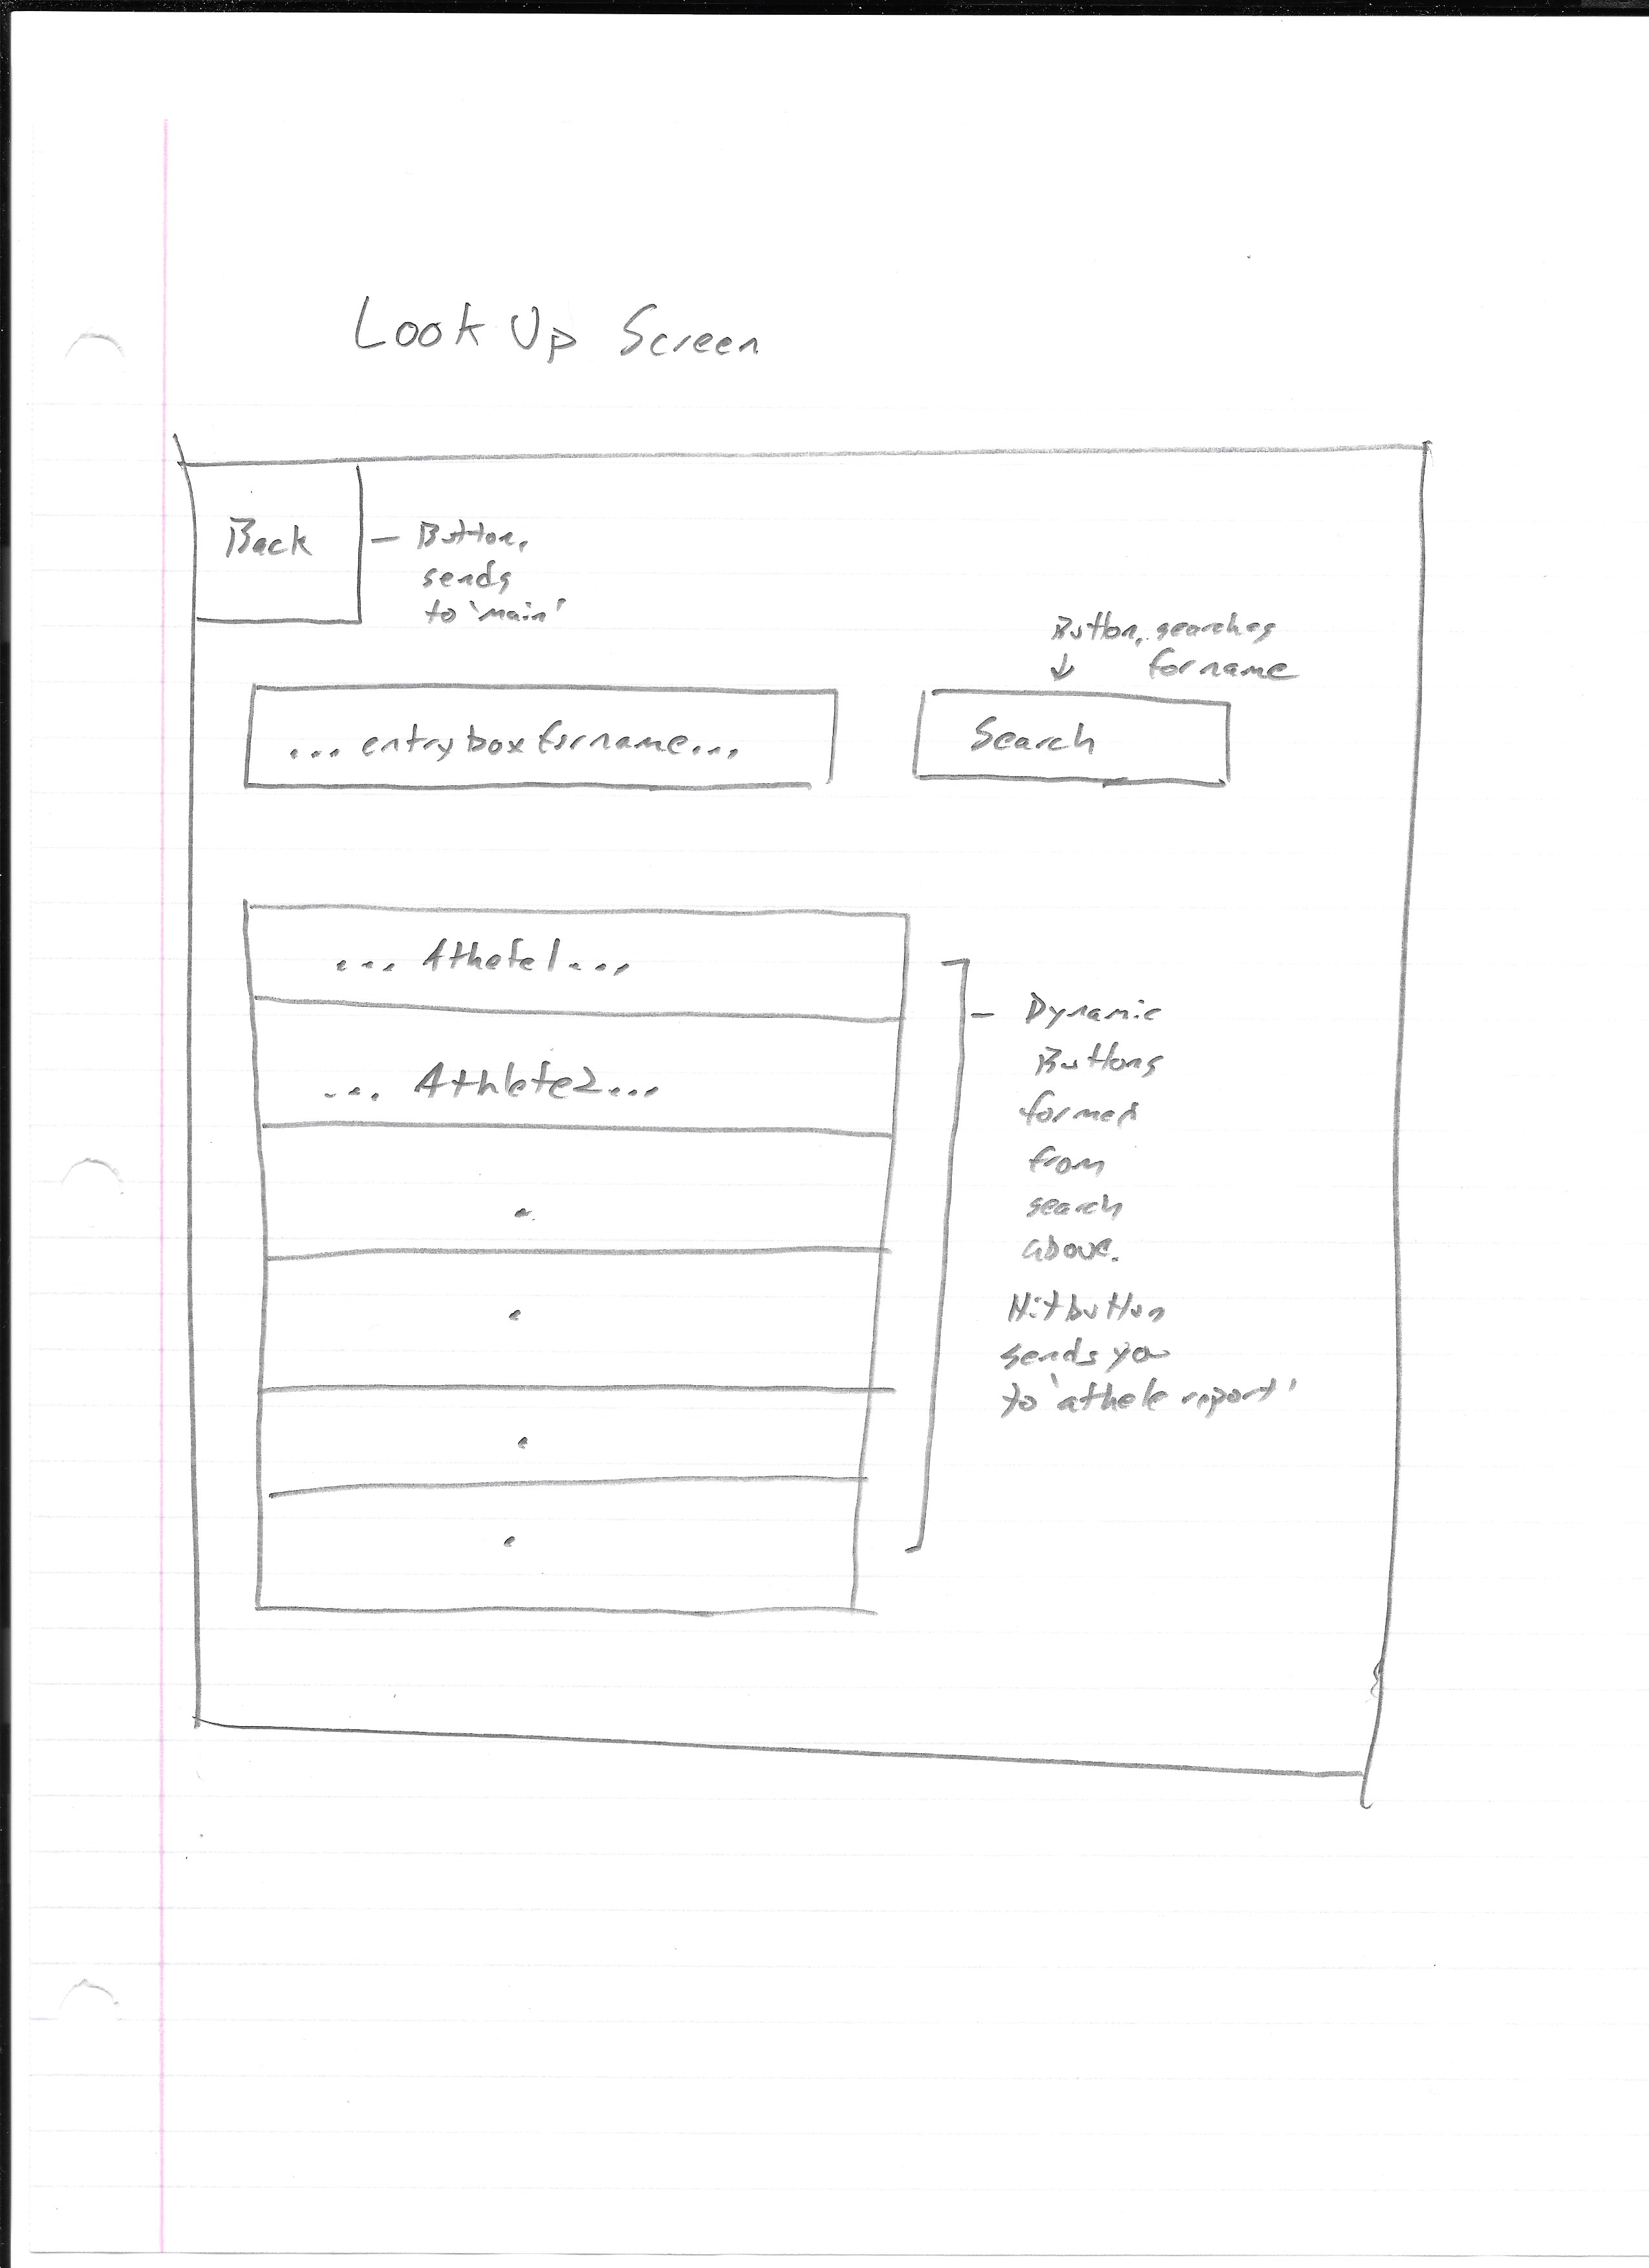 Look Up Screen
Back
- Button,
sends
to 'main'
Button, searches
↓ for name
... entry box for name...
Search
... Athefe1...
... Athlete2...
- Dynamic
Buttons
formed
from
search
above.
Hit button
sends you
to 'athele report'